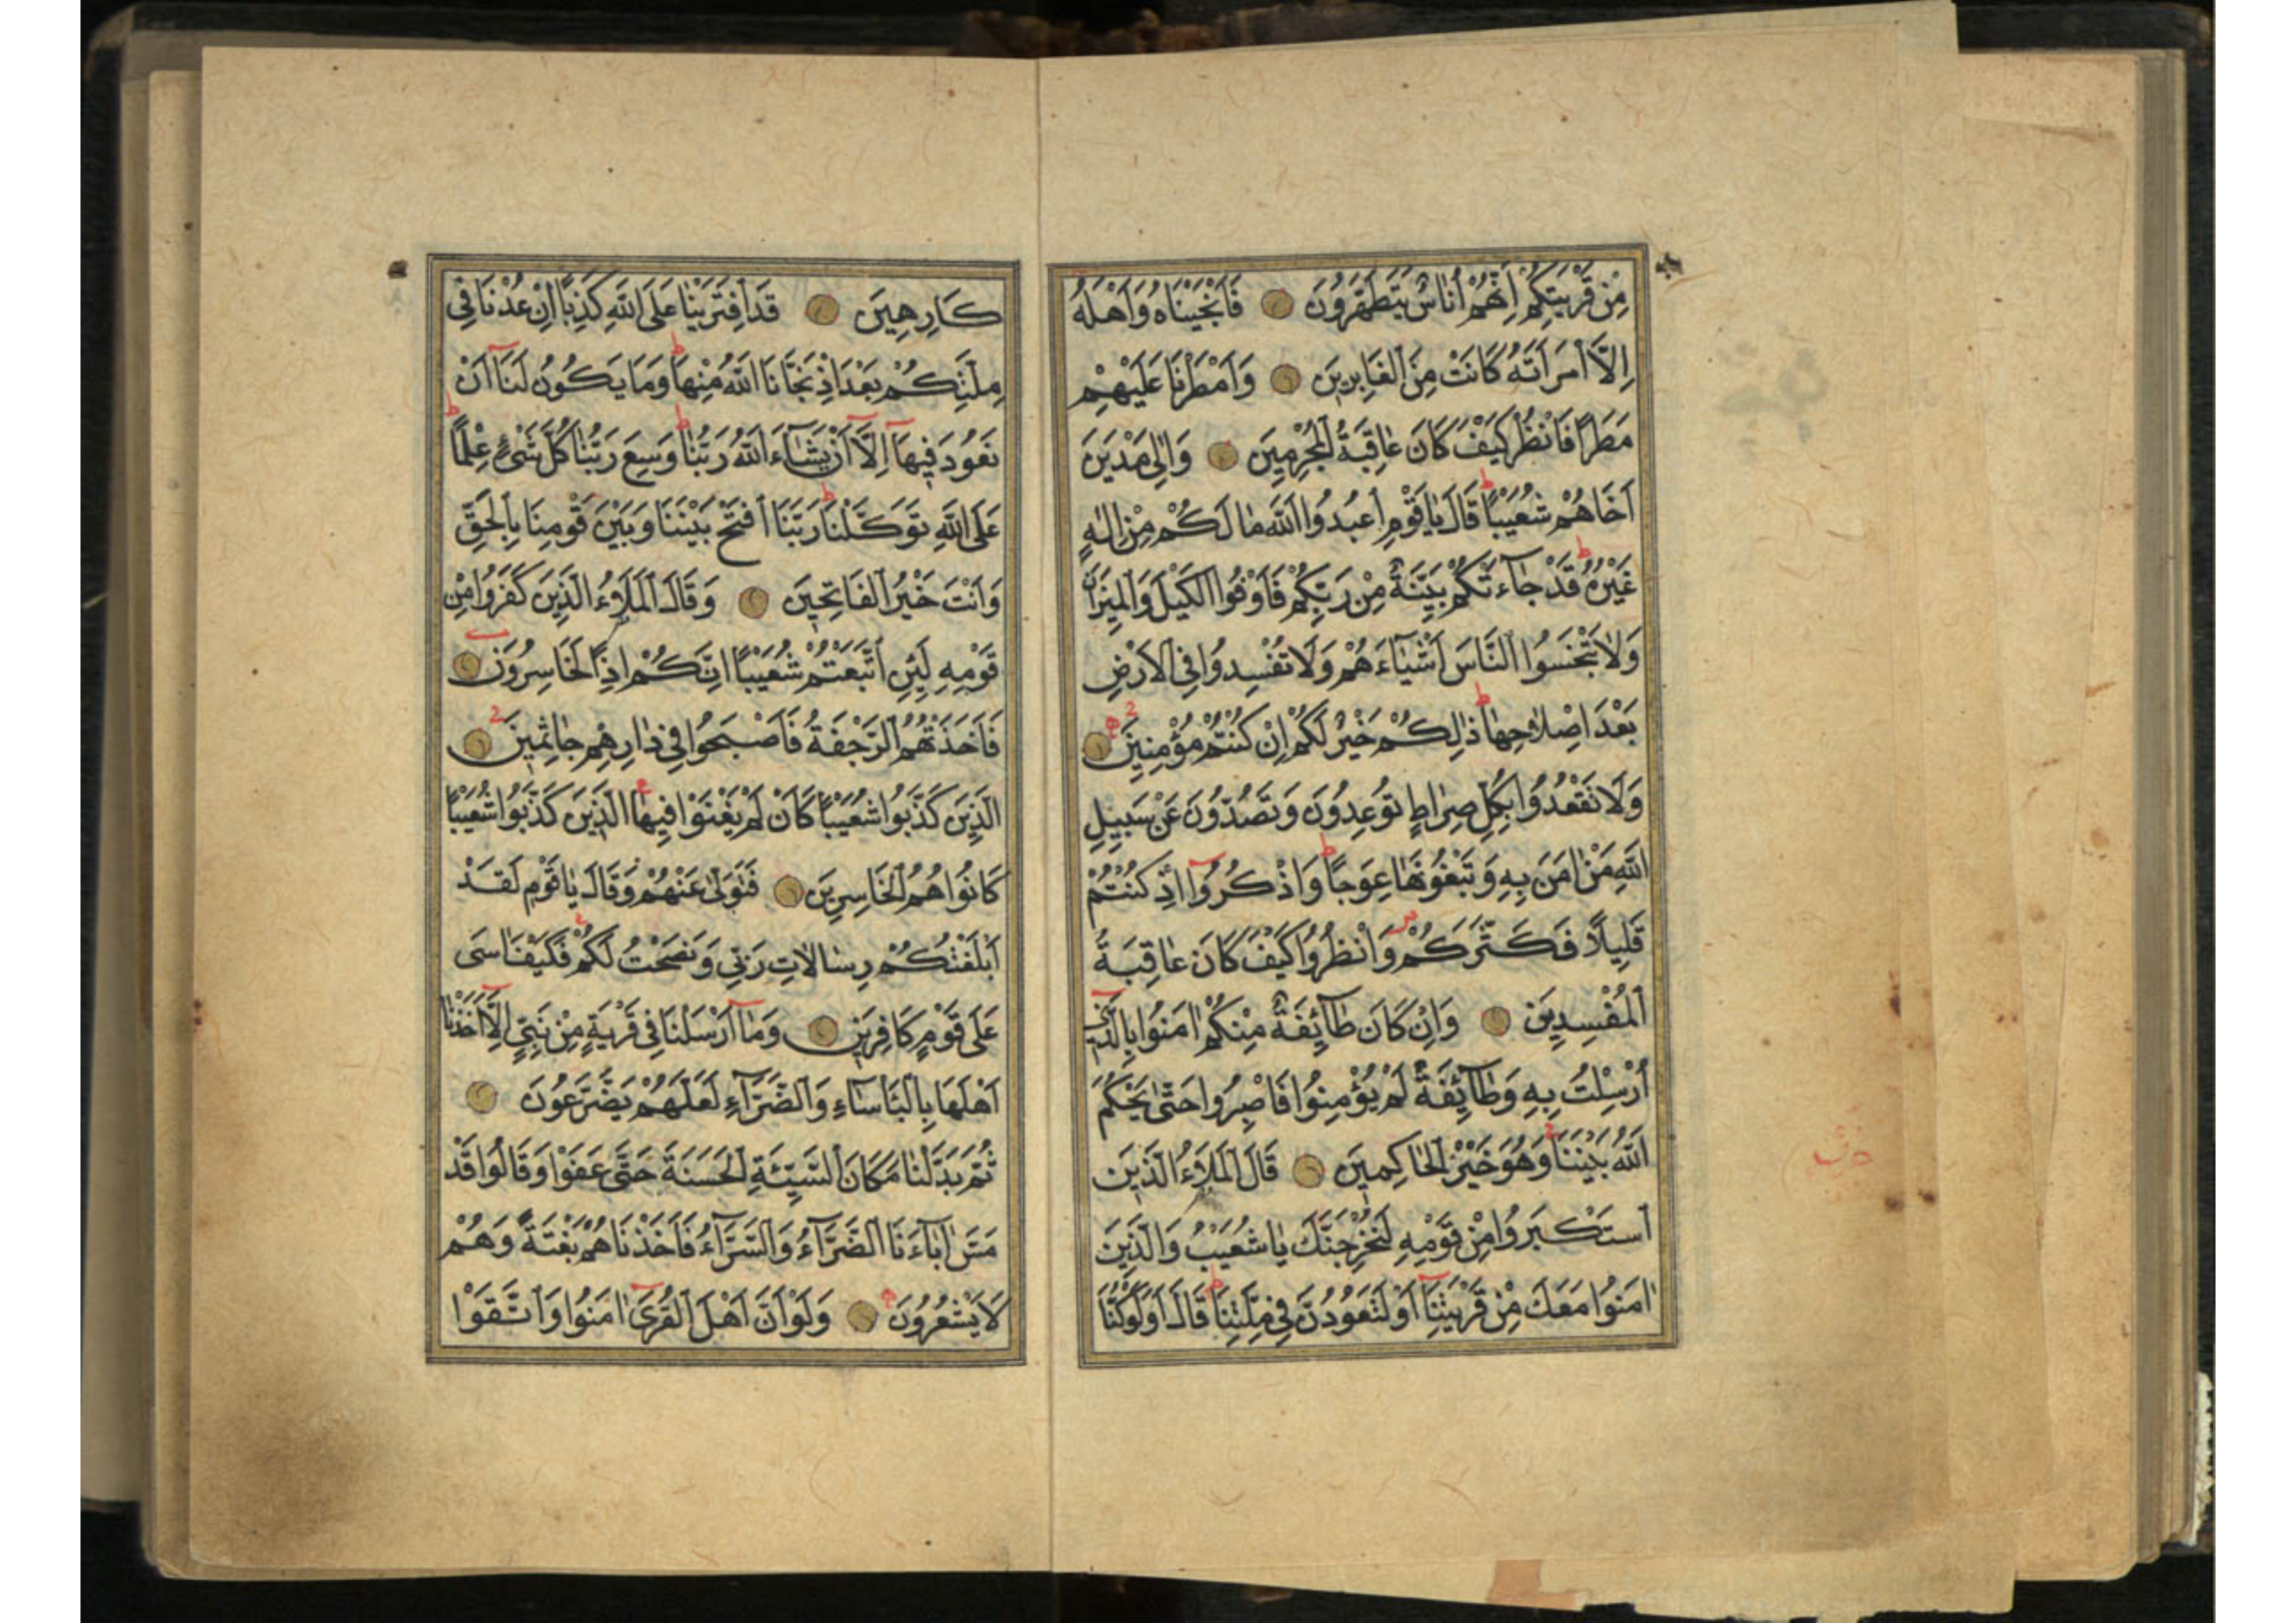 مِنْ قَرْيَتِكُمْ اِنَّهُمْ اُنَاسٌ يَتَطَهَّرُونَ فَاَنْجَيْنَاهُ وَاَهْلَهُ
اِلَّا امْرَاَتَهُ كَانَتْ مِنَ الْغَابِرِينَ وَاَمْطَرْنَا عَلَيْهِمْ
مَطَرًا فَانْظُرْ كَيْفَ كَانَ عَاقِبَةُ الْمُجْرِمِينَ وَاِلٰى مَدْيَنَ
اَخَاهُمْ شُعَيْبًا قَالَ يَا قَوْمِ اعْبُدُوا اللّٰهَ مَا لَكُمْ مِنْ اِلٰهٍ
غَيْرُهُ قَدْ جَاۤءَتْكُمْ بَيِّنَةٌ مِنْ رَبِّكُمْ فَاَوْفُوا الْكَيْلَ وَالْمِيزَانَ
وَلَا تَبْخَسُوا النَّاسَ اَشْيَاۤءَهُمْ وَلَا تُفْسِدُوا فِي الْاَرْضِ
بَعْدَ اِصْلَاحِهَا ذٰلِكُمْ خَيْرٌ لَكُمْ اِنْ كُنْتُمْ مُؤْمِنِينَ
وَلَا تَقْعُدُوا بِكُلِّ صِرَاطٍ تُوعِدُونَ وَتَصُدُّونَ عَنْ سَبِيلِ
اللّٰهِ مَنْ اٰمَنَ بِهِ وَتَبْغُونَهَا عِوَجًا وَاذْكُرُوا اِذْ كُنْتُمْ
قَلِيلًا فَكَثَّرَكُمْ وَانْظُرُوا كَيْفَ كَانَ عَاقِبَةُ
الْمُفْسِدِينَ وَاِنْ كَانَ طَاۤئِفَةٌ مِنْكُمْ اٰمَنُوا بِالَّذِي
اُرْسِلْتُ بِهِ وَطَاۤئِفَةٌ لَمْ يُؤْمِنُوا فَاصْبِرُوا حَتّٰى يَحْكُمَ
اللّٰهُ بَيْنَنَا وَهُوَ خَيْرُ الْحَاكِمِينَ قَالَ الْمَلَاُ الَّذِينَ
اسْتَكْبَرُوا مِنْ قَوْمِهِ لَنُخْرِجَنَّكَ يَا شُعَيْبُ وَالَّذِينَ
اٰمَنُوا مَعَكَ مِنْ قَرْيَتِنَا اَوْ لَتَعُودُنَّ فِي مِلَّتِنَا قَالَ اَوَلَوْ كُنَّا
كَارِهِينَ قَدِ افْتَرَيْنَا عَلَى اللّٰهِ كَذِبًا اِنْ عُدْنَا فِي
مِلَّتِكُمْ بَعْدَ اِذْ نَجَّانَا اللّٰهُ مِنْهَا وَمَا يَكُونُ لَنَا اَنْ
نَعُودَ فِيهَا اِلَّا اَنْ يَشَاۤءَ اللّٰهُ رَبُّنَا وَسِعَ رَبُّنَا كُلَّ شَيْءٍ عِلْمًا
عَلَى اللّٰهِ تَوَكَّلْنَا رَبَّنَا افْتَحْ بَيْنَنَا وَبَيْنَ قَوْمِنَا بِالْحَقِّ
وَاَنْتَ خَيْرُ الْفَاتِحِينَ وَقَالَ الْمَلَاُ الَّذِينَ كَفَرُوا مِنْ
قَوْمِهِ لَئِنِ اتَّبَعْتُمْ شُعَيْبًا اِنَّكُمْ اِذًا لَخَاسِرُونَ
فَاَخَذَتْهُمُ الرَّجْفَةُ فَاَصْبَحُوا فِي دَارِهِمْ جَاثِمِينَ
الَّذِينَ كَذَّبُوا شُعَيْبًا كَاَنْ لَمْ يَغْنَوْا فِيهَا الَّذِينَ كَذَّبُوا شُعَيْبًا
كَانُوا هُمُ الْخَاسِرِينَ فَتَوَلّٰى عَنْهُمْ وَقَالَ يَا قَوْمِ لَقَدْ
اَبْلَغْتُكُمْ رِسَالَاتِ رَبِّي وَنَصَحْتُ لَكُمْ فَكَيْفَ اٰسَى
عَلَى قَوْمٍ كَافِرِينَ وَمَا اَرْسَلْنَا فِي قَرْيَةٍ مِنْ نَبِيٍّ اِلَّا اَخَذْنَا
اَهْلَهَا بِالْبَاْسَاۤءِ وَالضَّرَّاۤءِ لَعَلَّهُمْ يَضَّرَّعُونَ
ثُمَّ بَدَّلْنَا مَكَانَ السَّيِّئَةِ الْحَسَنَةَ حَتَّى عَفَوْا وَقَالُوا قَدْ
مَسَّ اٰبَاۤءَنَا الضَّرَّاۤءُ وَالسَّرَّاۤءُ فَاَخَذْنَاهُمْ بَغْتَةً وَهُمْ
لَا يَشْعُرُونَ وَلَوْ اَنَّ اَهْلَ الْقُرَى اٰمَنُوا وَاتَّقَوْا